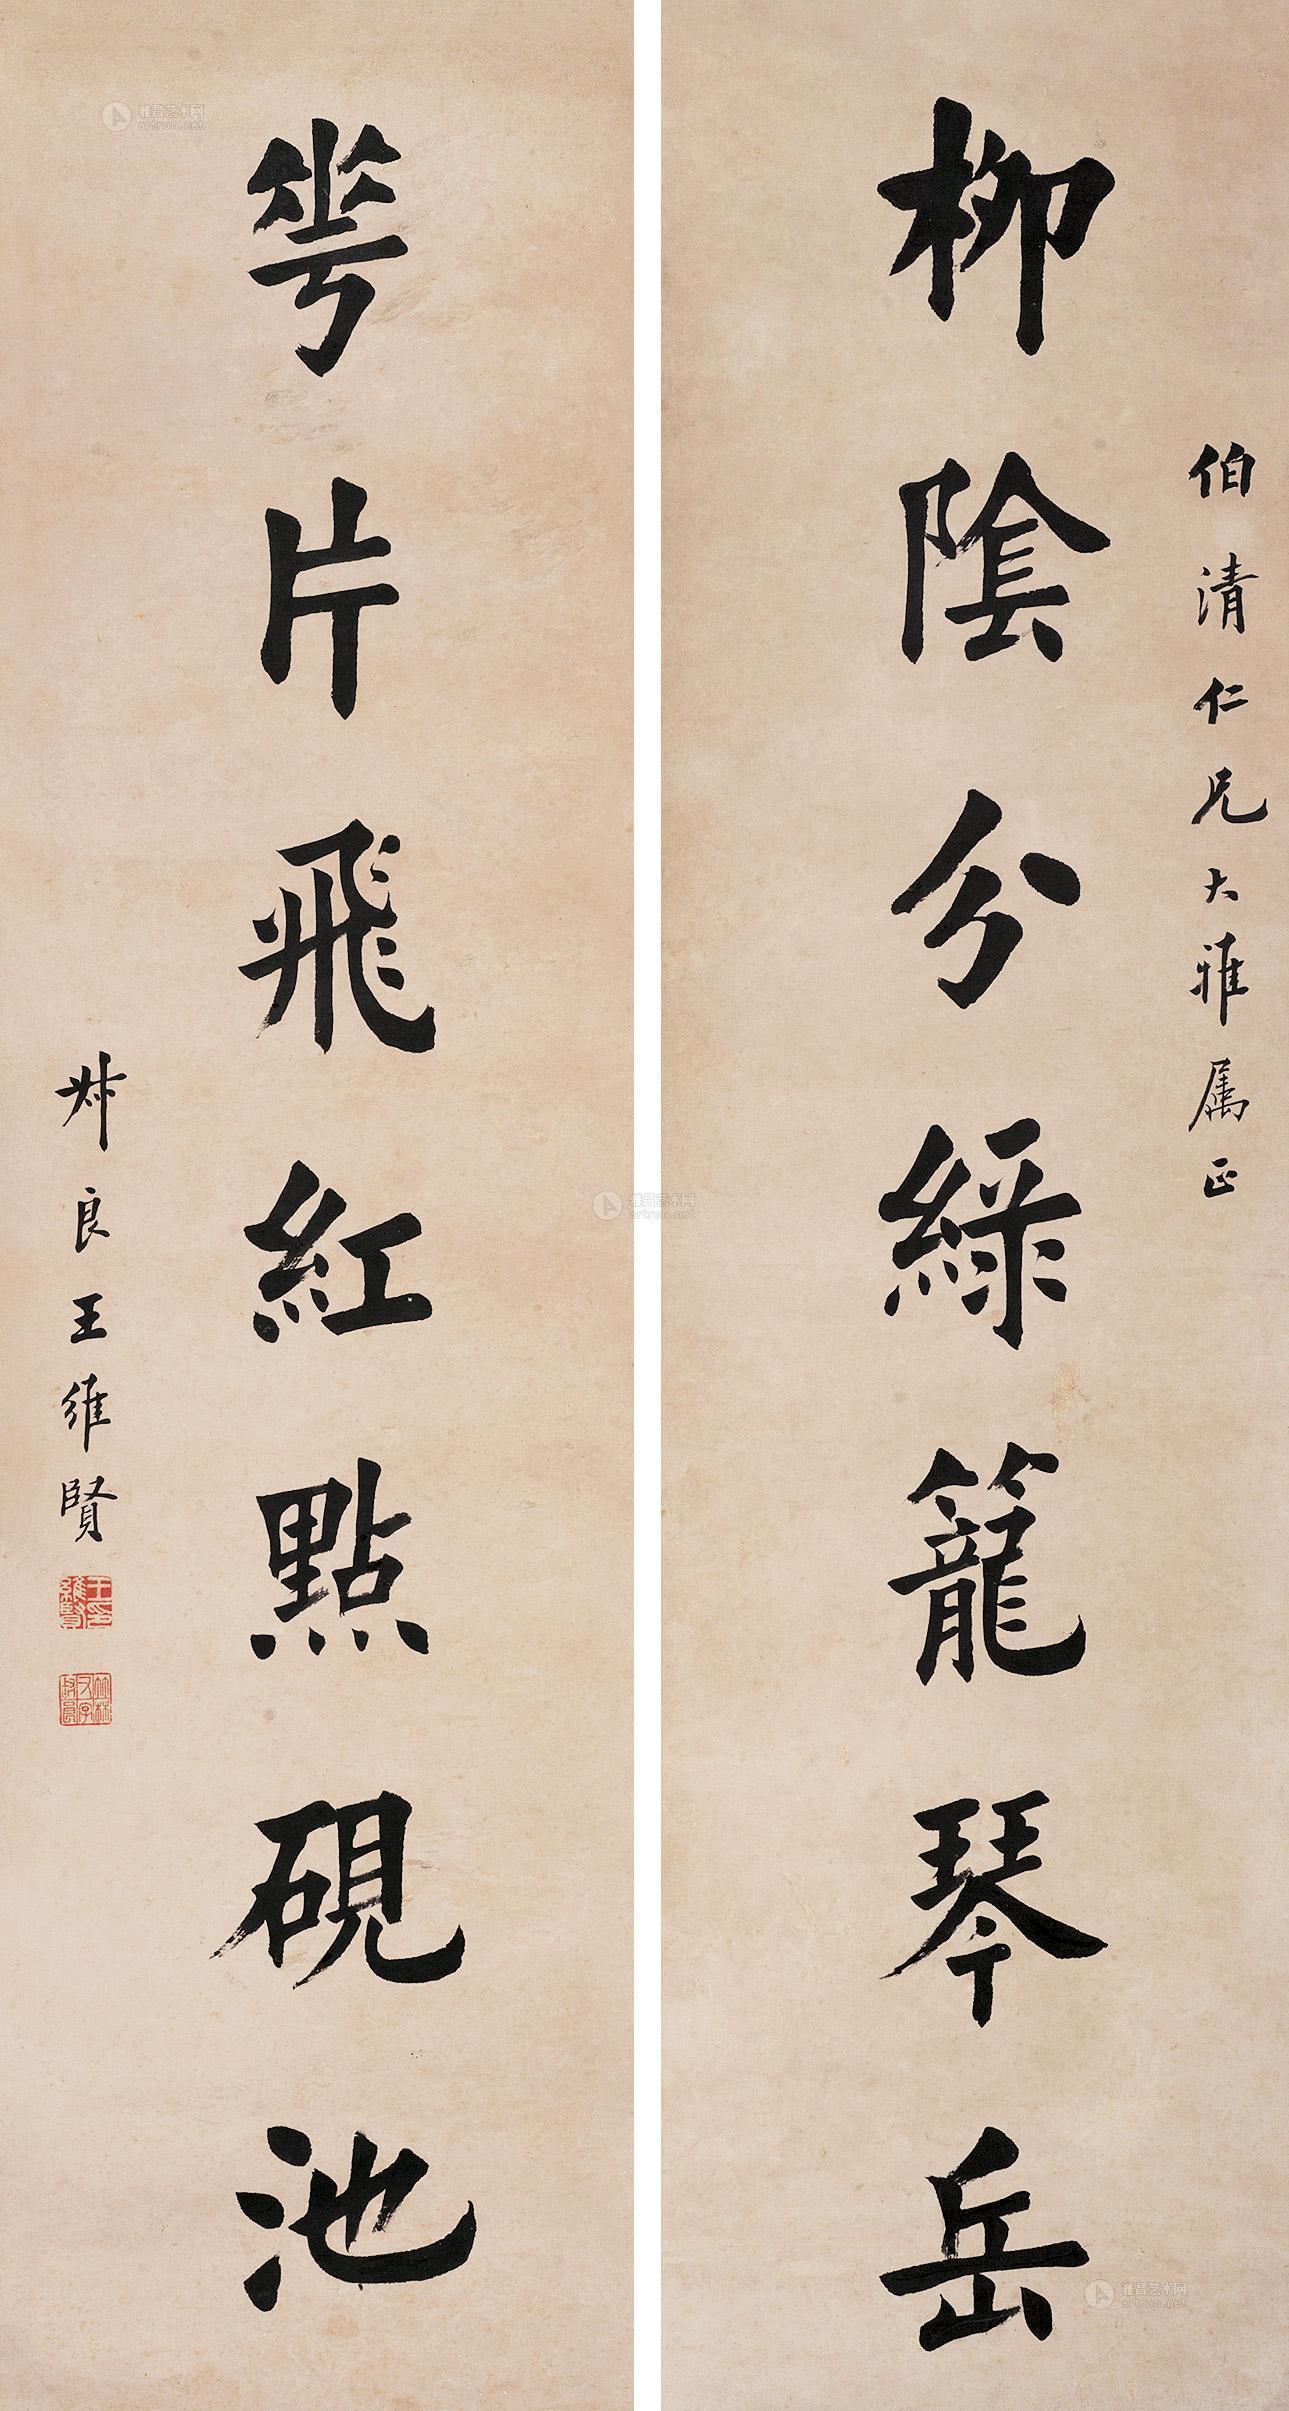 伯清仁兄大雅属正
柳隂分綠籠琴岳
𠌶片飛紅點硯池
叔良王維賢
王印維賢
竹林又字叔良
雅昌艺术网
artron.net
雅昌艺术网
artron.net
雅昌艺术网
artron.net